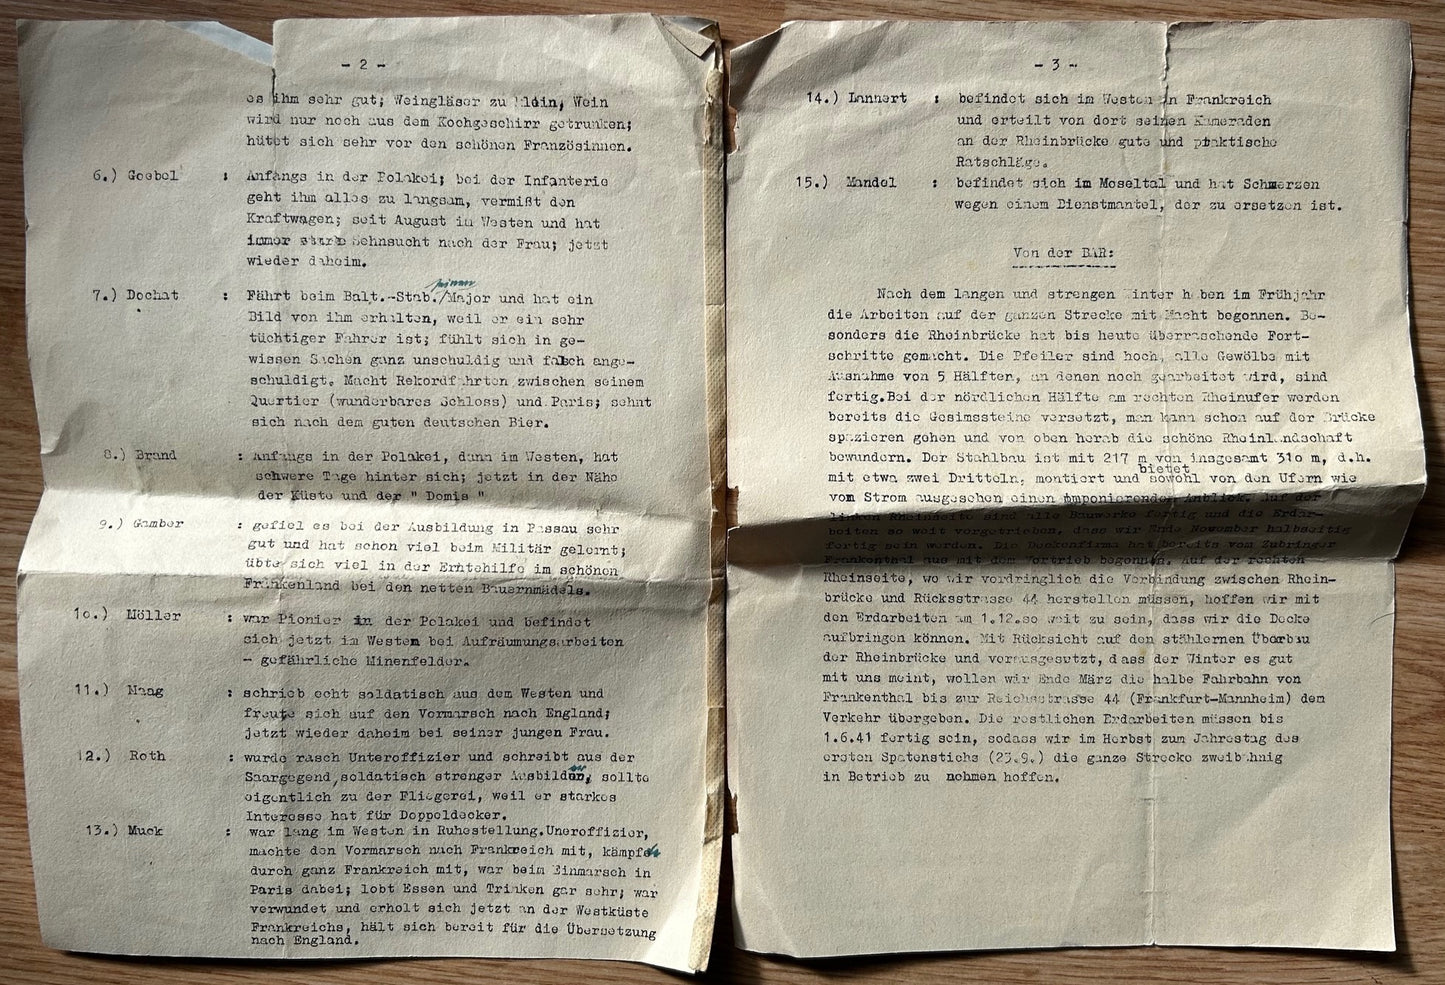 - 2 -
es ihm sehr gut; Weingläser zu Wein
wird nur noch aus dem Kochgeschirr getrunken;
hütet sich sehr vor den schönen Französinnen.
6.) Goebel : Anfangs in der Polakei; bei der Infanterie
geht ihm alles zu langsam, vermißt den
Kraftwagen; seit August im Westen und hat
immer starke Sehnsucht nach der Frau; jetzt
wieder daheim.
7.) Dochat : Fährt beim Batl.-Stab./ Major und hat ein
Bild von ihm erhalten, weil er ein sehr
tüchtiger Fahrer ist; fühlt sich in ge-
wissen Sachen ganz unschuldig und falsch ange-
schuldigt. Macht Rekordfahrten zwischen seinem
Quartier (wunderbares Schloss) und Paris; sehnt
sich nach dem guten deutschen Bier.
8.) Brand : Anfangs in der Polakei, dann im Westen, hat
schwere Tage hinter sich; jetzt in der Nähe
der Küste und der " Domis "
9.) Gamber : gefiel es bei der Ausbildung in Passau sehr
gut und hat schon viel beim Militär gelernt;
übte sich viel in der Erntehilfe im schönen
Frankenland bei den netten Bauernmädels.
1o.) Möller : war Pionier in der Polakei und befindet
sich jetzt im Westen bei Aufräumungsarbeiten
- gefährliche Minenfelder.
11.) Maag : schrieb echt soldatisch aus dem Westen und
freute sich auf den Vormarsch nach England;
jetzt wieder daheim bei seiner jungen Frau.
12.) Roth : wurde rasch Unteroffizier und schreibt aus der
Saargegend, soldatisch strenger Ausbilder, sollte
eigentlich zu der Fliegerei, weil er starkes
Interesse hat für Doppeldecker.
13.) Muck : war lang im Westen in Ruhestellung.Uneroffizier,
machte den Vormarsch nach Frankreich mit, kämpfte
durch ganz Frankreich mit, war beim Einmarsch in
Paris dabei; lobt Essen und Trinken gar sehr; war
verwundet und erholt sich jetzt an der Westküste
Frankreichs, hält sich bereit für die Übersetzung
nach England.
- 3 -
14.) Lannert : befindet sich im Westen in Frankreich
und erteilt von dort seinen Kameraden
an der Rheinbrücke gute und praktische
Ratschläge.
15.) Mandel : befindet sich im Moseltal und hat Schmerzen
wegen einem Dienstmantel, der zu ersetzen ist.
Von der BAR:
Nach dem langen und strengen Winter haben im Frühjahr
die Arbeiten auf der ganzen Strecke mit Macht begonnen. Be-
sonders die Rheinbrücke hat bis heute überraschende Fort-
schritte gemacht. Die Pfeiler sind hoch, alle Gewölbe mit
Ausnahme von 5 Hälften, an denen noch gearbeitet wird, sind
fertig.Bei der nördlichen Hälfte am rechten Rheinufer werden
bereits die Gesimssteine versetzt, man kann schon auf der Brücke
spazieren gehen und von oben herab die schöne Rheinlandschaft
bewundern. Der Stahlbau ist mit 217 m von insgesamt 31o m, d.h.
mit etwa zwei Dritteln, montiert und bietet sowohl von den Ufern wie
vom Strom ausgesehen einen imponierenden Anblick. Auf der
linken Rheinseite sind alle Bauwerke fertig und die Erdar-
beiten so weit vorgetrieben, dass wir Ende November halbseitig
fertig sein werden. Die Deckenfirma hat bereits vom Zubringer
Frankenthal aus mit dem Vortrieb begonnen. Auf der rechten
Rheinseite, wo wir vordringlich die Verbindung zwischen Rhein-
brücke und Rücksstrasse 44 herstellen müssen, hoffen wir mit
den Erdarbeiten am 1.12.so weit zu sein, dass wir die Decke
aufbringen können. Mit Rücksicht auf den stählernen Überbau
der Rheinbrücke und vorausgesetzt, dass der Winter es gut
mit uns meint, wollen wir Ende März die halbe Fahrbahn von
Frankenthal bis zur Reichsstrasse 44 (Frankfurt-Mannheim) dem
Verkehr übergeben. Die restlichen Erdarbeiten müssen bis
1.6.41 fertig sein, sodass wir im Herbst zum Jahrestag des
ersten Spatenstichs (23.9.) die ganze Strecke zweibahnig
in Betrieb zu nehmen hoffen.